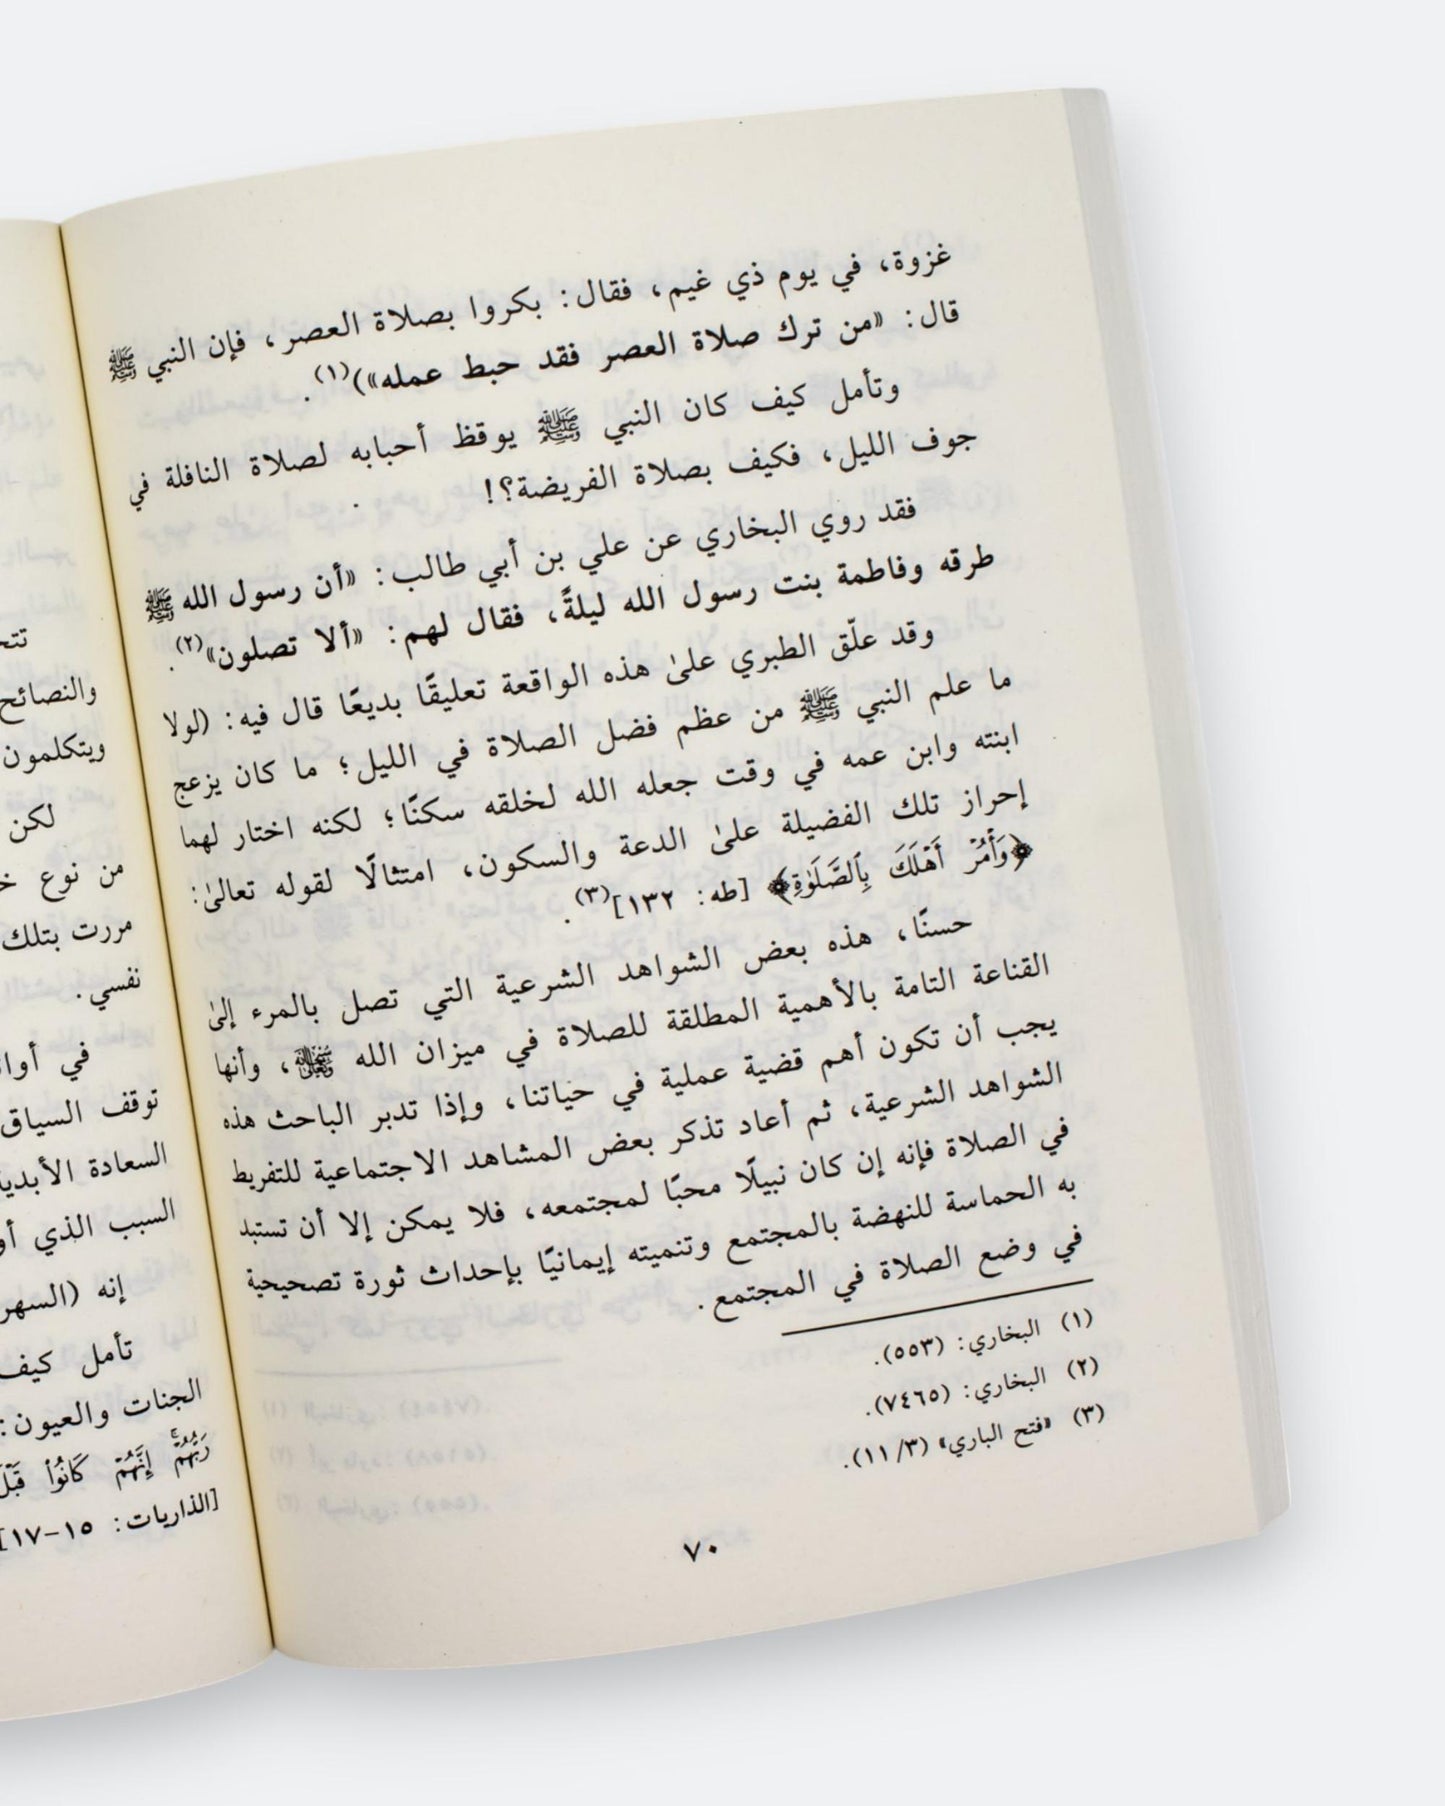 غزوة، في يوم ذي غيم، فقال: بكروا بصلاة العصر، فإن النبي ﷺ
قال: «من ترك صلاة العصر فقد حبط عمله»)(١).
وتأمل كيف كان النبي ﷺ يوقظ أحبابه لصلاة النافلة في
جوف الليل، فكيف بصلاة الفريضة؟!
فقد روي البخاري عن علي بن أبي طالب: «أن رسول الله ﷺ
طرقه وفاطمة بنت رسول الله ليلةً، فقال لهم: «ألا تصلون»(٢).
وقد علّق الطبري علىٰ هذه الواقعة تعليقًا بديعًا قال فيه: (لولا
ما علم النبي ﷺ من عظم فضل الصلاة في الليل؛ ما كان يزعج
ابنته وابن عمه في وقت جعله الله لخلقه سكنًا؛ لكنه اختار لهما
إحراز تلك الفضيلة علىٰ الدعة والسكون، امتثالًا لقوله تعالىٰ:
﴿وَأۡمُرۡ أَهۡلَكَ بِٱلصَّلَوٰةِ﴾ [طه: ١٣٢](٣).
حسنًا، هذه بعض الشواهد الشرعية التي تصل بالمرء إلىٰ
القناعة التامة بالأهمية المطلقة للصلاة في ميزان الله ، وأنها
يجب أن تكون أهم قضية عملية في حياتنا، وإذا تدبر الباحث هذه
الشواهد الشرعية، ثم أعاد تذكر بعض المشاهد الاجتماعية للتفريط
في الصلاة فإنه إن كان نبيلًا محبًا لمجتمعه، فلا يمكن إلا أن تستبد
به الحماسة للنهضة بالمجتمع وتنميته إيمانيًا بإحداث ثورة تصحيحية
في وضع الصلاة في المجتمع.
(١) البخاري: (٥٥٣).
(٢) البخاري: (٧٤٦٥).
(٣) «فتح الباري» (١١/٣).
٧٠
والنصائح
ويتكلمون
لكن
من نوع
مررت بتلك
نفسي.
في
توقف السياق
السعادة
السبب الذي
إنه (السهر
تأمل كيف
الجنات والعيون:
رَبُّهُمۡۚ إِنَّهُمۡ كَانُواْ قَبۡلَ
[الذاريات: ١٥-١٧]